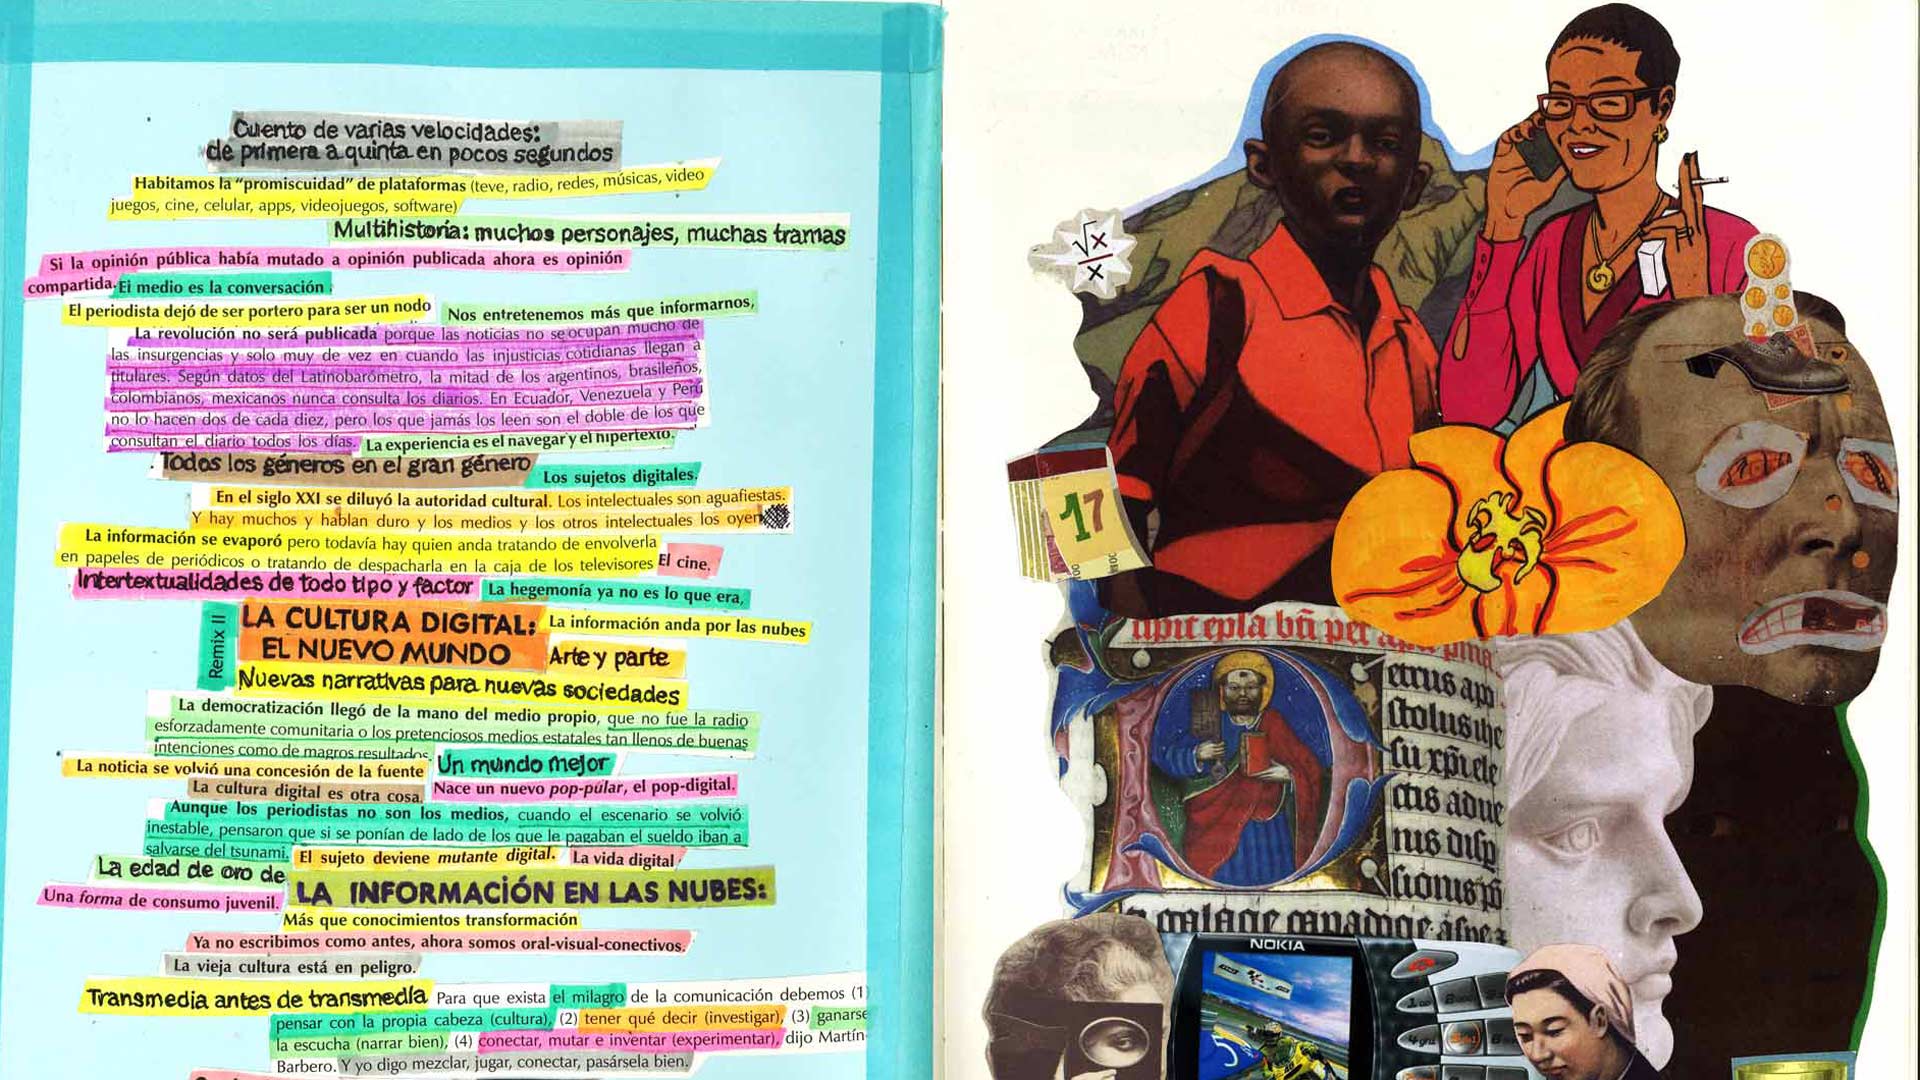 Cuento de varias velocidades:
de primera a quinta en pocos segundos
Habitamos la “promiscuidad” de plataformas (teve, radio, redes, músicas, video
juegos, cine, celular, apps, videojuegos, software)
Multihistoria: muchos personajes, muchas tramas
Si la opinión pública había mutado a opinión publicada ahora es opinión
compartida. El medio es la conversación
El periodista dejó de ser portero para ser un nodo Nos entretenemos más que informarnos,
La revolución no será publicada porque las noticias no se ocupan mucho de
las insurgencias y solo muy de vez en cuando las injusticias cotidianas llegan a
titulares. Según datos del Latinobarómetro, la mitad de los argentinos, brasileños,
colombianos, mexicanos nunca consulta los diarios. En Ecuador, Venezuela y Perú
no lo hacen dos de cada diez, pero los que jamás los leen son el doble de los que
consultan el diario todos los días. La experiencia es el navegar y el hipertexto.
Todos los géneros en el gran género Los sujetos digitales.
En el siglo XXI se diluyó la autoridad cultural. Los intelectuales son aguafiestas.
Y hay muchos y hablan duro y los medios y los otros intelectuales los oyen
La información se evaporó pero todavía hay quien anda tratando de envolverla
en papeles de periódicos o tratando de despacharla en la caja de los televisores El cine.
Intertextualidades de todo tipo y factor La hegemonía ya no es lo que era,
Remix II
LA CULTURA DIGITAL: La información anda por las nubes
EL NUEVO MUNDO Arte y parte
Nuevas narrativas para nuevas sociedades
La democratización llegó de la mano del medio propio, que no fue la radio
esforzadamente comunitaria o los pretenciosos medios estatales tan llenos de buenas
intenciones como de magros resultados. Un mundo mejor
La noticia se volvió una concesión de la fuente
La cultura digital es otra cosa. Nace un nuevo pop-púlar, el pop-digital.
Aunque los periodistas no son los medios, cuando el escenario se volvió
inestable, pensaron que si se ponían de lado de los que le pagaban el sueldo iban a
salvarse del tsunami. El sujeto deviene mutante digital. La vida digital
La edad de oro de
Una forma de consumo juvenil. LA INFORMACIÓN EN LAS NUBES:
Más que conocimientos transformación
Ya no escribimos como antes, ahora somos oral-visual-conectivos.
La vieja cultura está en peligro.
Transmedia antes de transmedia Para que exista el milagro de la comunicación debemos (1)
pensar con la propia cabeza (cultura), (2) tener qué decir (investigar), (3) ganarse
la escucha (narrar bien), (4) conectar, mutar e inventar (experimentar), dijo Martín-
Barbero. Y yo digo mezclar, jugar, conectar, pasársela bien.
√x
x
17
etrus
NOKIA